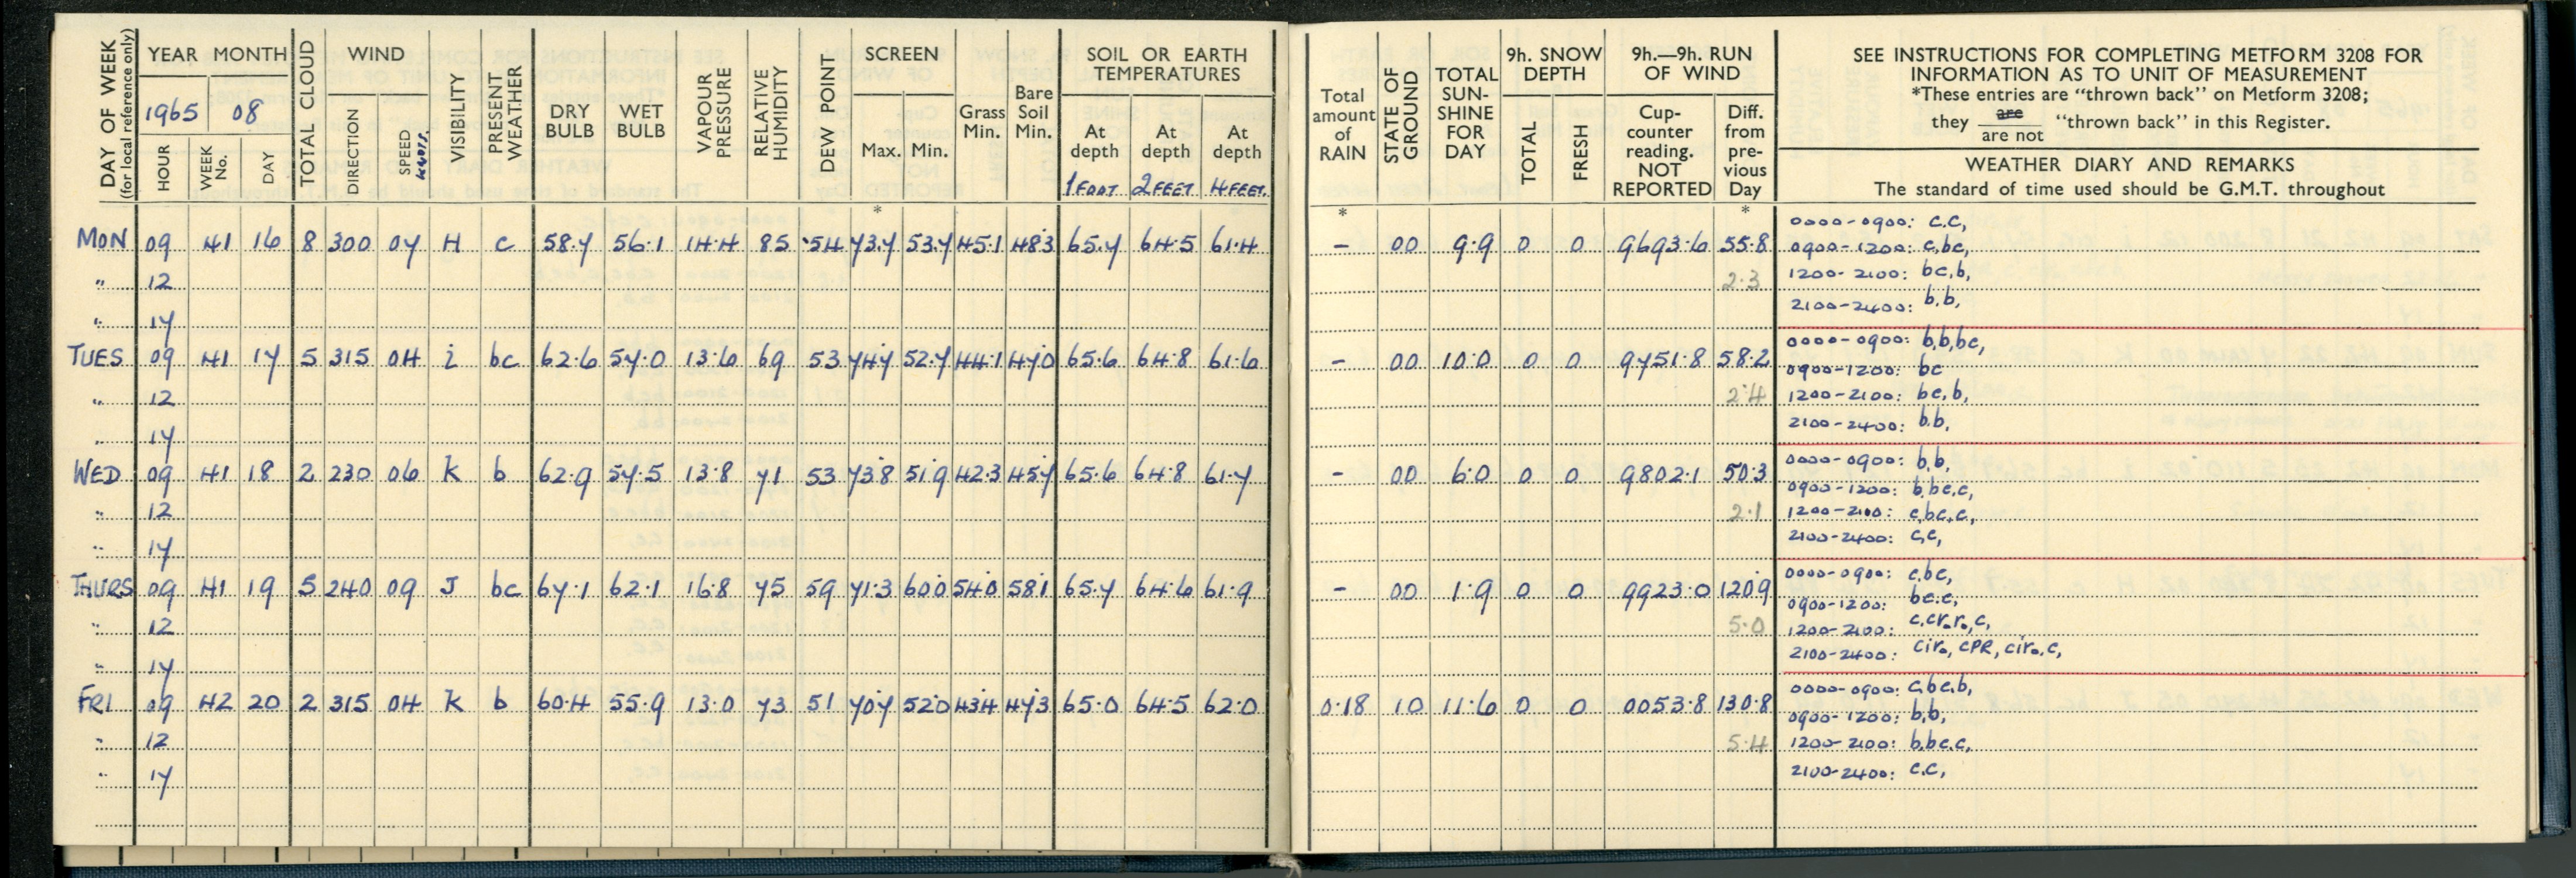 DAY OF WEEK
(for local reference only)
YEAR MONTH
1965 08
HOUR
WEEK No.
DAY
TOTAL CLOUD
WIND
DIRECTION
SPEED
KNOTS.
VISIBILITY
PRESENT WEATHER
DRY BULB
WET BULB
VAPOUR PRESSURE
RELATIVE HUMIDITY
DEW POINT
SCREEN
Max. Min.
Grass Min.
Bare Soil Min.
SOIL OR EARTH
TEMPERATURES
At depth 1 FOOT
At depth 2 FEET
At depth 4 FEET.
Total amount of RAIN
STATE OF GROUND
TOTAL SUN-SHINE FOR DAY
9h. SNOW DEPTH
TOTAL
FRESH
9h.—9h. RUN OF WIND
Cup-counter reading. NOT REPORTED
Diff. from pre-vious Day
SEE INSTRUCTIONS FOR COMPLETING METFORM 3208 FOR
INFORMATION AS TO UNIT OF MEASUREMENT
*These entries are “thrown back” on Metform 3208;
they are / are not “thrown back” in this Register.
WEATHER DIARY AND REMARKS
The standard of time used should be G.M.T. throughout
* * *
MON 09 41 16 8 300 07 H c 58.7 56.1 14.4 85 54 73.7 53.7 45.1 48.3 65.7 64.5 61.4 – 00 9.9 0 0 9693.6 55.8
0000-0900: c.c,
0900-1200: c,bc,
" 12 2.3
1200-2100: bc,b,
2100-2400: b.b,
" 17
TUES 09 41 17 5 315 04 i bc 62.6 57.0 13.6 69 53 74.7 52.7 44.1 47.0 65.6 64.8 61.6 – 00 10.0 0 0 9751.8 58.2
0000-0900: b,b,bc,
0900-1200: bc
" 12 2.4
1200-2100: bc,b,
2100-2400: b.b,
" 17
WED 09 41 18 2 230 06 k b 62.9 57.5 13.8 71 53 73.8 51.9 42.3 45.7 65.6 64.8 61.7 – 00 6.0 0 0 9802.1 50.3
0000-0900: b,b,
0900-1200: b,bc.c,
" 12 2.1
1200-2100: c,bc,c,
2100-2400: c,c,
" 17
THURS 09 41 19 5 240 09 J bc 67.1 62.1 16.8 75 59 71.3 60.0 54.0 58.1 65.7 64.6 61.9 – 00 1.9 0 0 9923.0 120.9
0000-0900: c,bc,
0900-1200: bc.c,
" 12 5.0
1200-2100: c,cr₀r₀,c,
2100-2400: cir₀, cPR, cir₀.c,
" 17
FRI 09 42 20 2 315 04 k b 60.4 55.9 13.0 73 51 70.7 52.0 43.4 47.3 65.0 64.5 62.0 0.18 10 11.6 0 0 0053.8 130.8
0000-0900: c,bc,b,
0900-1200: b,b,
" 12 5.4
1200-2100: b,bc.c,
2100-2400: c.c,
" 17